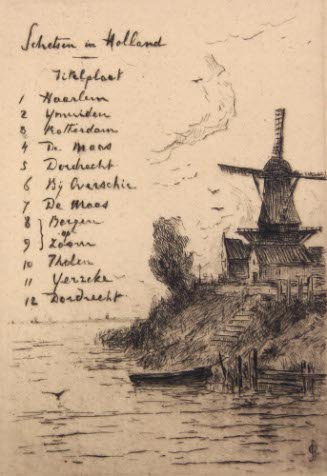 Schetsen in Holland
Titelplaat
1 Haarlem
2 Ymuiden
3 Rotterdam
4 De Maas
5 Dordrecht
6 Bij Overschie
7 De Maas
8 } Bergen
op
9 } Zoom
10 Tholen
11 Yerzeke
12 Dordrecht